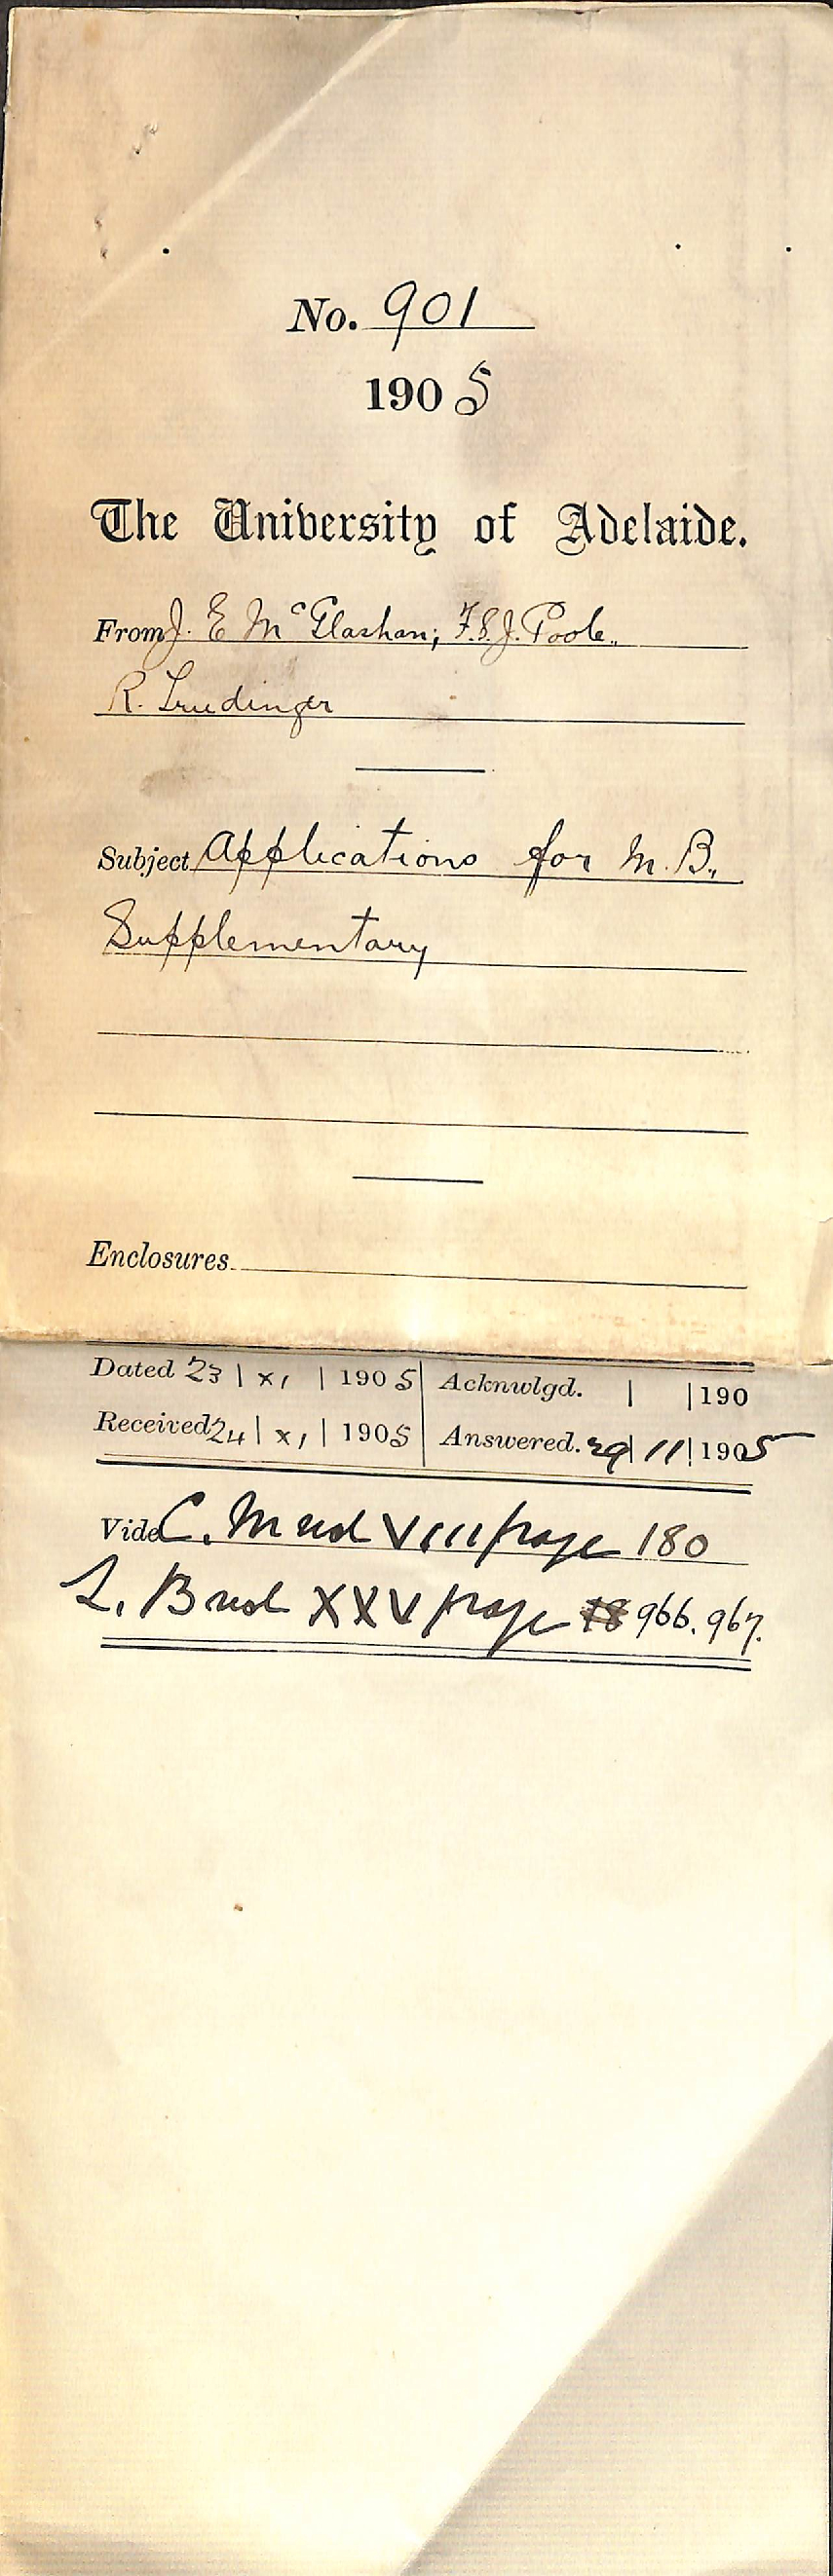 No. 901
1905
The University of Adelaide.
From J. E McGlashan; F.S.J. Poole.
R. Trudinger
Subject Applications for M.B.
Supplementary
Enclosures
Dated 23 | XI | 1905 Acknwlgd. | |190
Received 24 | XI | 1905 Answered. 29| 11| 1905
Vide C. M vol VIII page 180
L. B vol XXV page 966. 967.